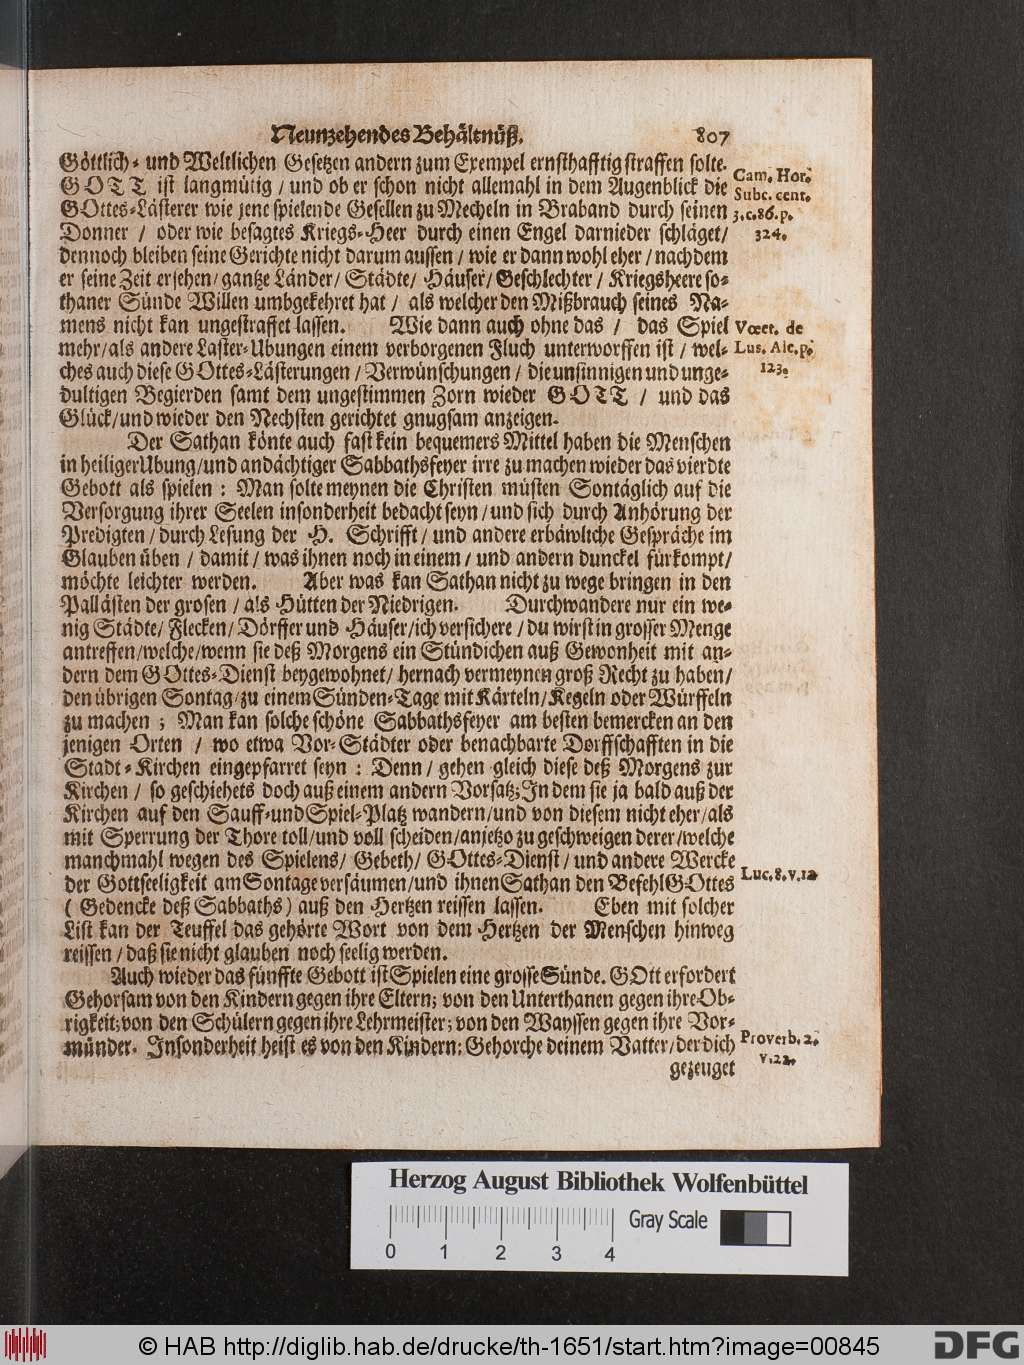 Neunzehendes Behältnüß. 807
Göttlich- und Weltlichen Gesetzen andern zum Exempel ernsthafftig straffen solte.
GOTT ist langmütig / und ob er schon nicht allemahl in dem Augenblick die
GOttes-Lästerer wie jene spielende Gesellen zu Mecheln in Braband durch seinen
Donner / oder wie besagtes Kriegs-Heer durch einen Engel darnieder schläget /
dennoch bleiben seine Gerichte nicht darum aussen / wie er dann wohl eher / nachdem
er seine Zeit ersehen / gantze Länder / Städte / Häuser / Geschlechter / Kriegsheere so-
thaner Sünde Willen umbgekehret hat / als welcher den Mißbrauch seines Na-
mens nicht kan ungestraffet lassen. Wie dann auch ohne das / das Spiel
mehr / als andere Laster-Ubungen einem verborgenen Fluch unterworffen ist / wel-
ches auch diese GOttes-Lästerungen / Verwünschungen / die unsinnigen und unge-
dultigen Begierden samt dem ungestimmen Zorn wieder GOTT / und das
Glück / und wieder den Nechsten gerichtet gnugsam anzeigen.
Cam. Hor.
Subc. cent.
3. c. 86. p.
324.
Voet. de
Lus. Alc. p.
123.
Der Sathan könte auch fast kein bequemers Mittel haben die Menschen
in heiliger Ubung / und andächtiger Sabbathsfeyer irre zu machen wieder das vierdte
Gebott als spielen : Man solte meynen die Christen müsten Sontäglich auf die
Versorgung ihrer Seelen insonderheit bedacht seyn / und sich durch Anhörung der
Predigten / durch Lesung der H. Schrifft / und andere erbäwliche Gespräche im
Glauben üben / damit / was ihnen noch in einem / und andern dunckel fürkompt /
möchte leichter werden. Aber was kan Sathan nicht zu wege bringen in den
Pallästen der grosen / als Hütten der Niedrigen. Durchwandere nur ein we-
nig Städte / Flecken / Dörffer und Häuser / ich versichere / du wirst in grosser Menge
antreffen / welche / wenn sie deß Morgens ein Stündichen auß Gewonheit mit an-
dern dem GOttes-Dienst beygewohnet / hernach vermeynen groß Recht zu haben /
den übrigen Sontag / zu einem Sünden-Tage mit Kärteln / Kegeln oder Würffeln
zu machen ; Man kan solche schöne Sabbathsfeyer am besten bemercken an den
jenigen Orten / wo etwa Vor-Städter oder benachbarte Dorffschafften in die
Stadt-Kirchen eingepfarret seyn : Denn / gehen gleich diese deß Morgens zur
Kirchen / so geschiehets doch auß einem andern Vorsatz; In dem sie ja bald auß der
Kirchen auf den Sauff-und Spiel-Platz wandern / und von diesem nicht eher / als
mit Sperrung der Thore toll / und voll scheiden / anjetzo zu geschweigen derer / welche
manchmahl wegen des Spielens / Gebeth / GOttes-Dienst / und andere Wercke
der Gottseeligkeit am Sontage versäumen / und ihnen Sathan den Befehl GOttes
( Gedencke deß Sabbaths ) auß den Hertzen reissen lassen. Eben mit solcher
List kan der Teuffel das gehörte Wort von dem Hertzen der Menschen hinweg
reissen / daß sie nicht glauben noch seelig werden.
Luc. 8. v. 12
Auch wieder das fünffte Gebott ist Spielen eine grosse Sünde. GOtt erfordert
Gehorsam von den Kindern gegen ihre Eltern; von den Unterthanen gegen ihre Ob-
rigkeit; von den Schülern gegen ihre Lehrmeister; von den Wayssen gegen ihre Vor-
münder. Insonderheit heist es von den Kindern: Gehorche deinem Vatter / der dich
gezeuget
Proverb. 2.
v. 22.
Herzog August Bibliothek Wolfenbüttel
Gray Scale
0 1 2 3 4
© HAB http://diglib.hab.de/drucke/th-1651/start.htm?image=00845
DFG